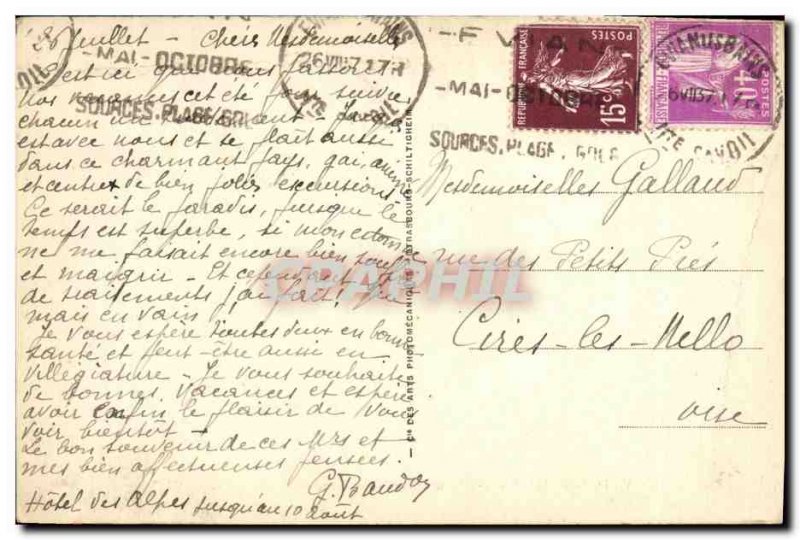 26 Juillet - Chères Mesdemoiselles
C'est ici que nous passons
nos vacances cet été pour suivre
chacun
est avec nous et se plaît aussi
dans ce charmant pays, gai, animé
et centre de bien jolies excursions
Ce serait le paradis, puisque le
temps est superbe, si mon estomac
ne me faisait encore bien souffrir
et maigrir - Et cependant
de traitements j'ai fait!
mais en vain!
Je vous espère toutes deux en bonne
santé et peut-être aussi en
villégiature - Je vous souhaite
de bonnes vacances et espère
avoir enfin le plaisir de vous
voir bientôt -
Le bon souvenir de ces Mrs et
mes bien affectueuses pensées.
G. Baudon
Hôtel des Alpes jusqu'au 10 août
MAI-OCTOBRE
SOURCES.PLAGE.GOLF
26 VII 37
EVIAN
-MAI-OCTOBRE
SOURCES.PLAGE.GOLF
EVIAN LES BAINS
26 VII 37
HTE SAVOIE
REPUBLIQUE FRANÇAISE
POSTES
15c
POSTES
40c
Cie DES ARTS PHOTOMÉCANIQUES STRASBOURG-SCHILTIGHEIM
CPAPHIL
Mesdemoiselles Galland
rue des Petits Prés
Cires-les-Mello
Oise